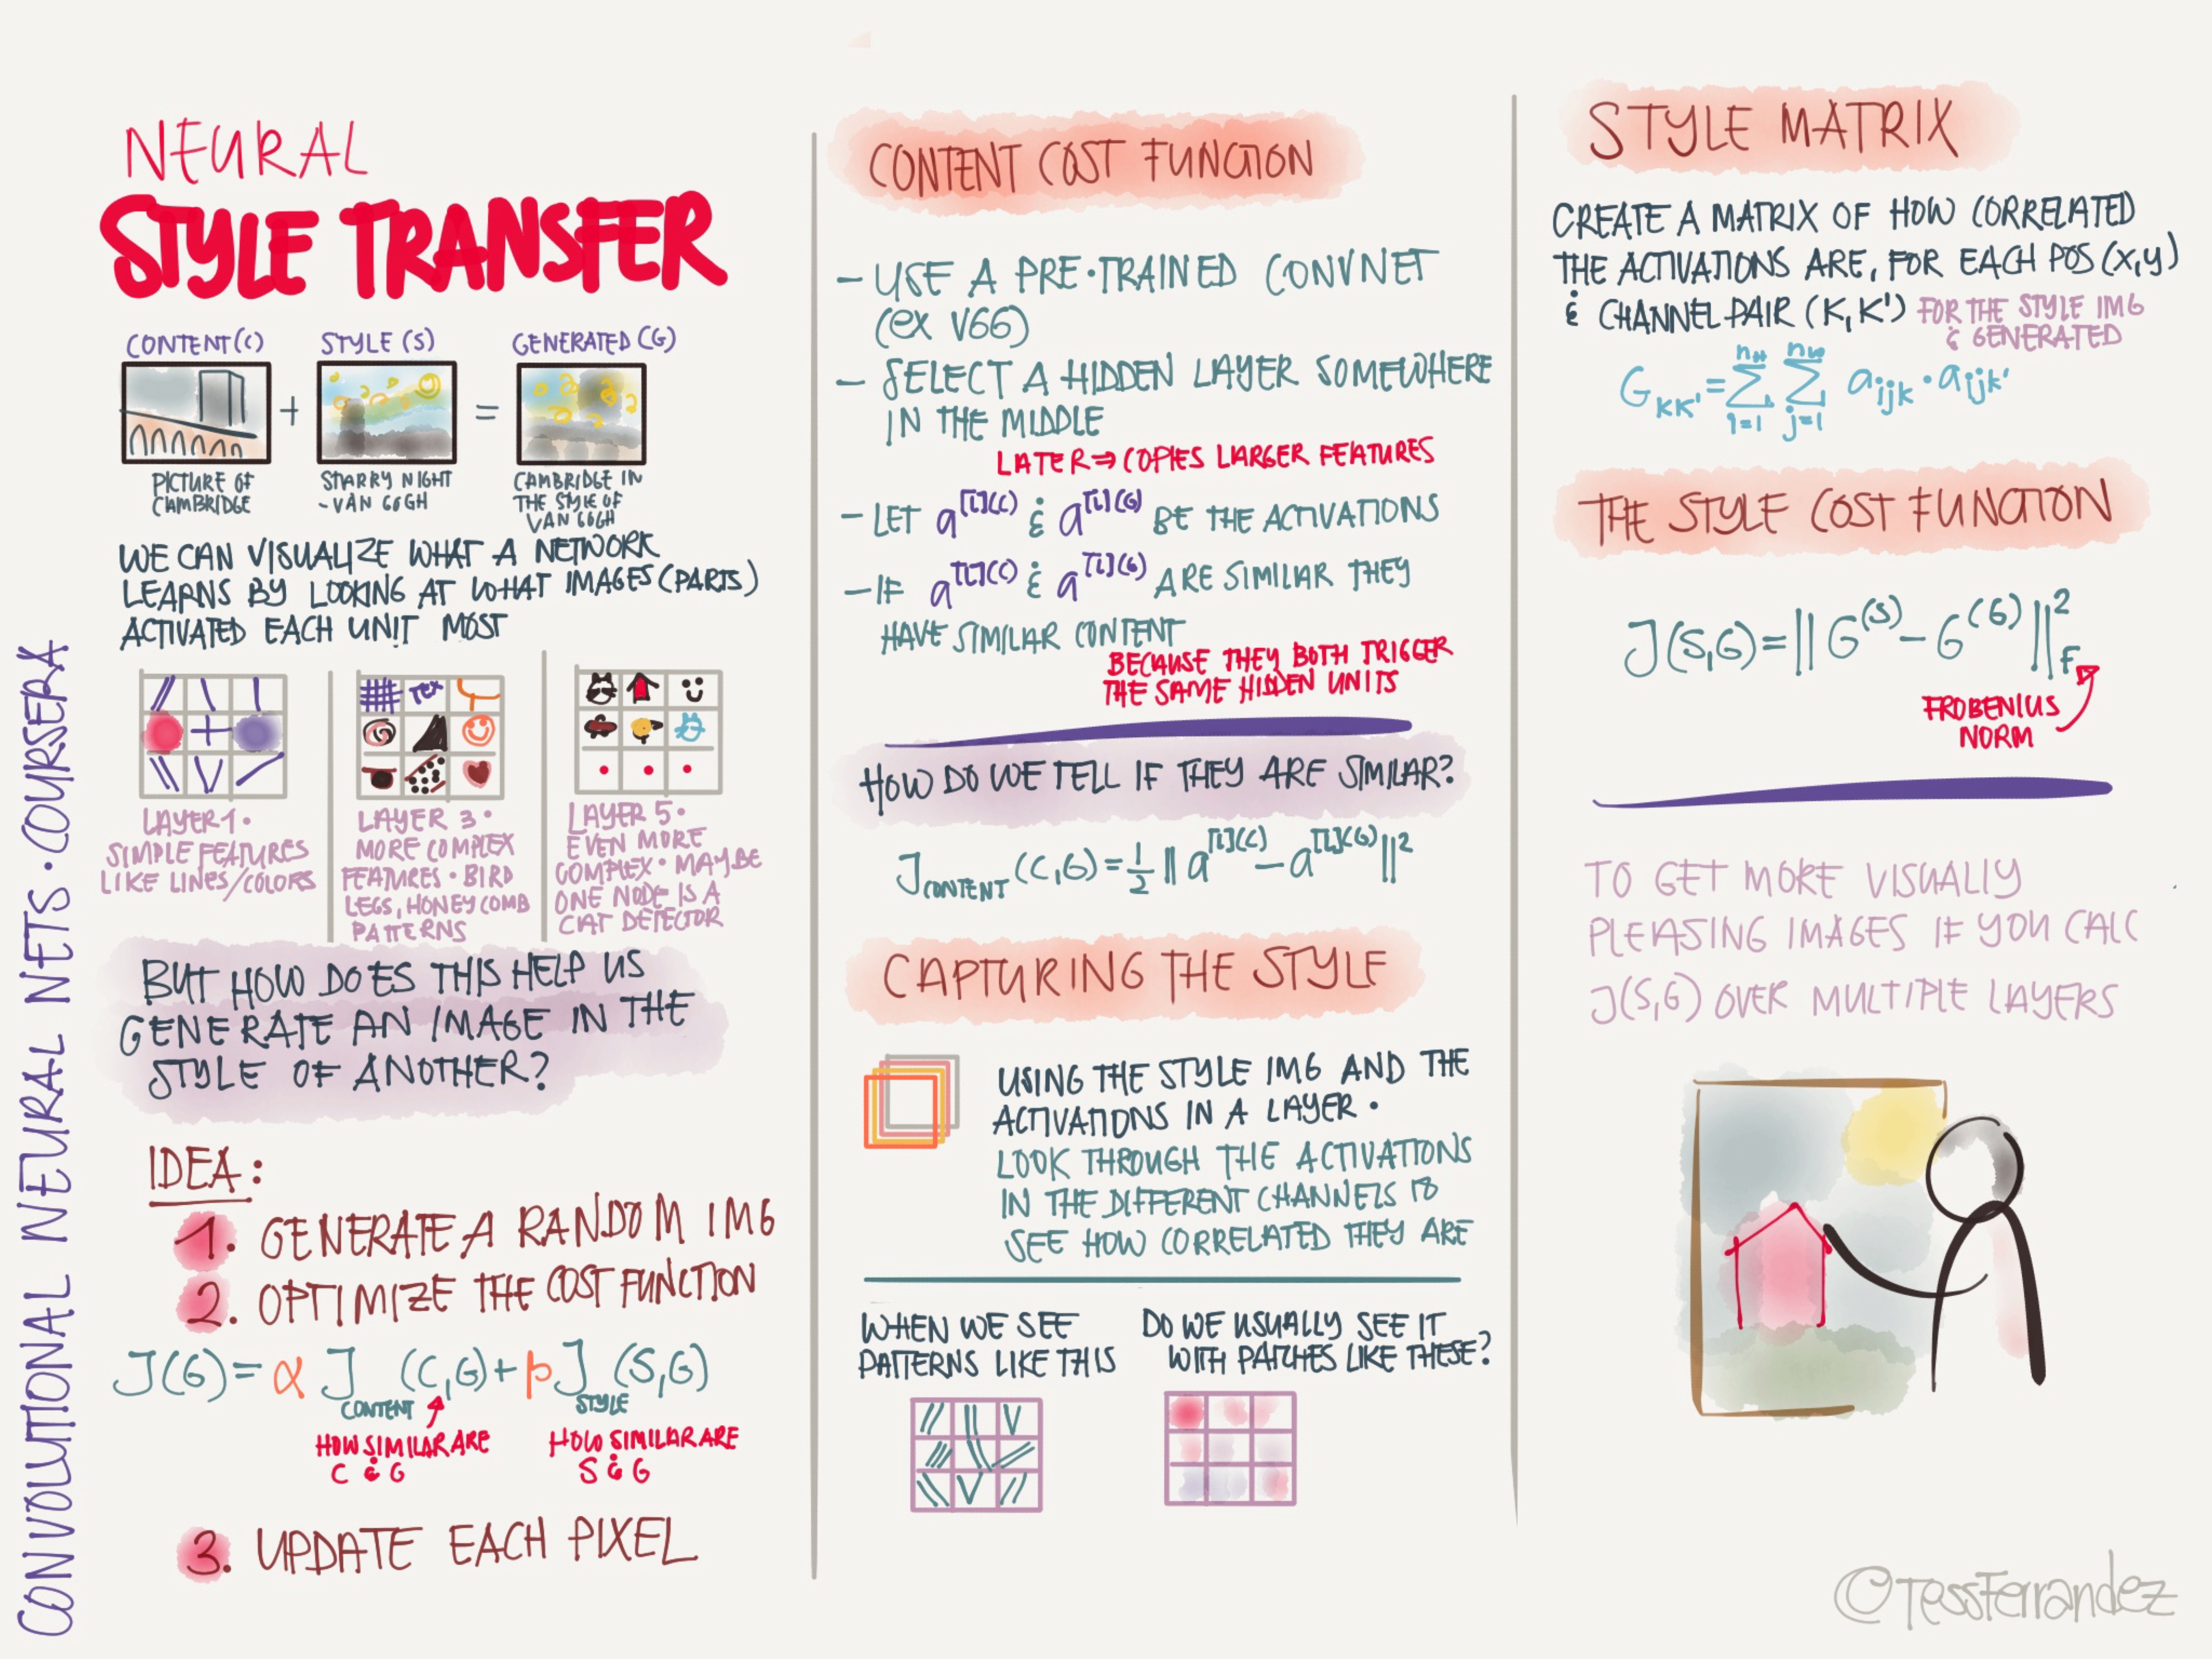 CONVOLUTIONAL NEURAL NETS · COURSERA
NEURAL
STYLE TRANSFER
CONTENT (C)
STYLE (S)
GENERATED (G)
+
=
PICTURE OF
CAMBRIDGE
STARRY NIGHT
- VAN GOGH
CAMBRIDGE IN
THE STYLE OF
VAN GOGH
WE CAN VISUALIZE WHAT A NETWORK
LEARNS BY LOOKING AT WHAT IMAGES (PARTS)
ACTIVATED EACH UNIT MOST
TEX
LAYER 1 ·
SIMPLE FEATURES
LIKE LINES/COLORS
LAYER 3 ·
MORE COMPLEX
FEATURES · BIRD
LEGS, HONEYCOMB
PATTERNS
LAYER 5 ·
EVEN MORE
COMPLEX · MAYBE
ONE NODE IS A
CAT DETECTOR
BUT HOW DOES THIS HELP US
GENERATE AN IMAGE IN THE
STYLE OF ANOTHER?
IDEA:
1. GENERATE A RANDOM IMG
2. OPTIMIZE THE COST FUNCTION
J(G) = α J CONTENT (C,G) + β J STYLE (S,G)
HOW SIMILAR ARE
C & G
HOW SIMILAR ARE
S & G
3. UPDATE EACH PIXEL
CONTENT COST FUNCTION
- USE A PRE·TRAINED CONVNET
(EX VGG)
- SELECT A HIDDEN LAYER SOMEWHERE
IN THE MIDDLE
LATER ⇒ COPIES LARGER FEATURES
- LET a[l](C) & a[l](G) BE THE ACTIVATIONS
- IF a[l](C) & a[l](G) ARE SIMILAR THEY
HAVE SIMILAR CONTENT
BECAUSE THEY BOTH TRIGGER
THE SAME HIDDEN UNITS
HOW DO WE TELL IF THEY ARE SIMILAR?
J CONTENT (C,G) = 1/2 || a[l](C) - a[l](G) ||²
CAPTURING THE STYLE
USING THE STYLE IMG AND THE
ACTIVATIONS IN A LAYER ·
LOOK THROUGH THE ACTIVATIONS
IN THE DIFFERENT CHANNELS TO
SEE HOW CORRELATED THEY ARE
WHEN WE SEE
PATTERNS LIKE THIS
DO WE USUALLY SEE IT
WITH PATCHES LIKE THESE?
STYLE MATRIX
CREATE A MATRIX OF HOW CORRELATED
THE ACTIVATIONS ARE, FOR EACH POS (X,Y)
& CHANNEL PAIR (K,K') FOR THE STYLE IMG
& GENERATED
G KK' = Σ i=1 nH Σ j=1 nW a ijk · a ijk'
THE STYLE COST FUNCTION
J(S,G) = || G(S) - G(G) ||² F
FROBENIUS
NORM
TO GET MORE VISUALLY
PLEASING IMAGES IF YOU CALC
J(S,G) OVER MULTIPLE LAYERS
©TessFerrandez